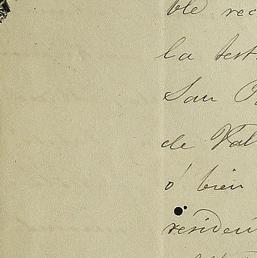 ble rec
la test
San
de Val
ó bien
residen